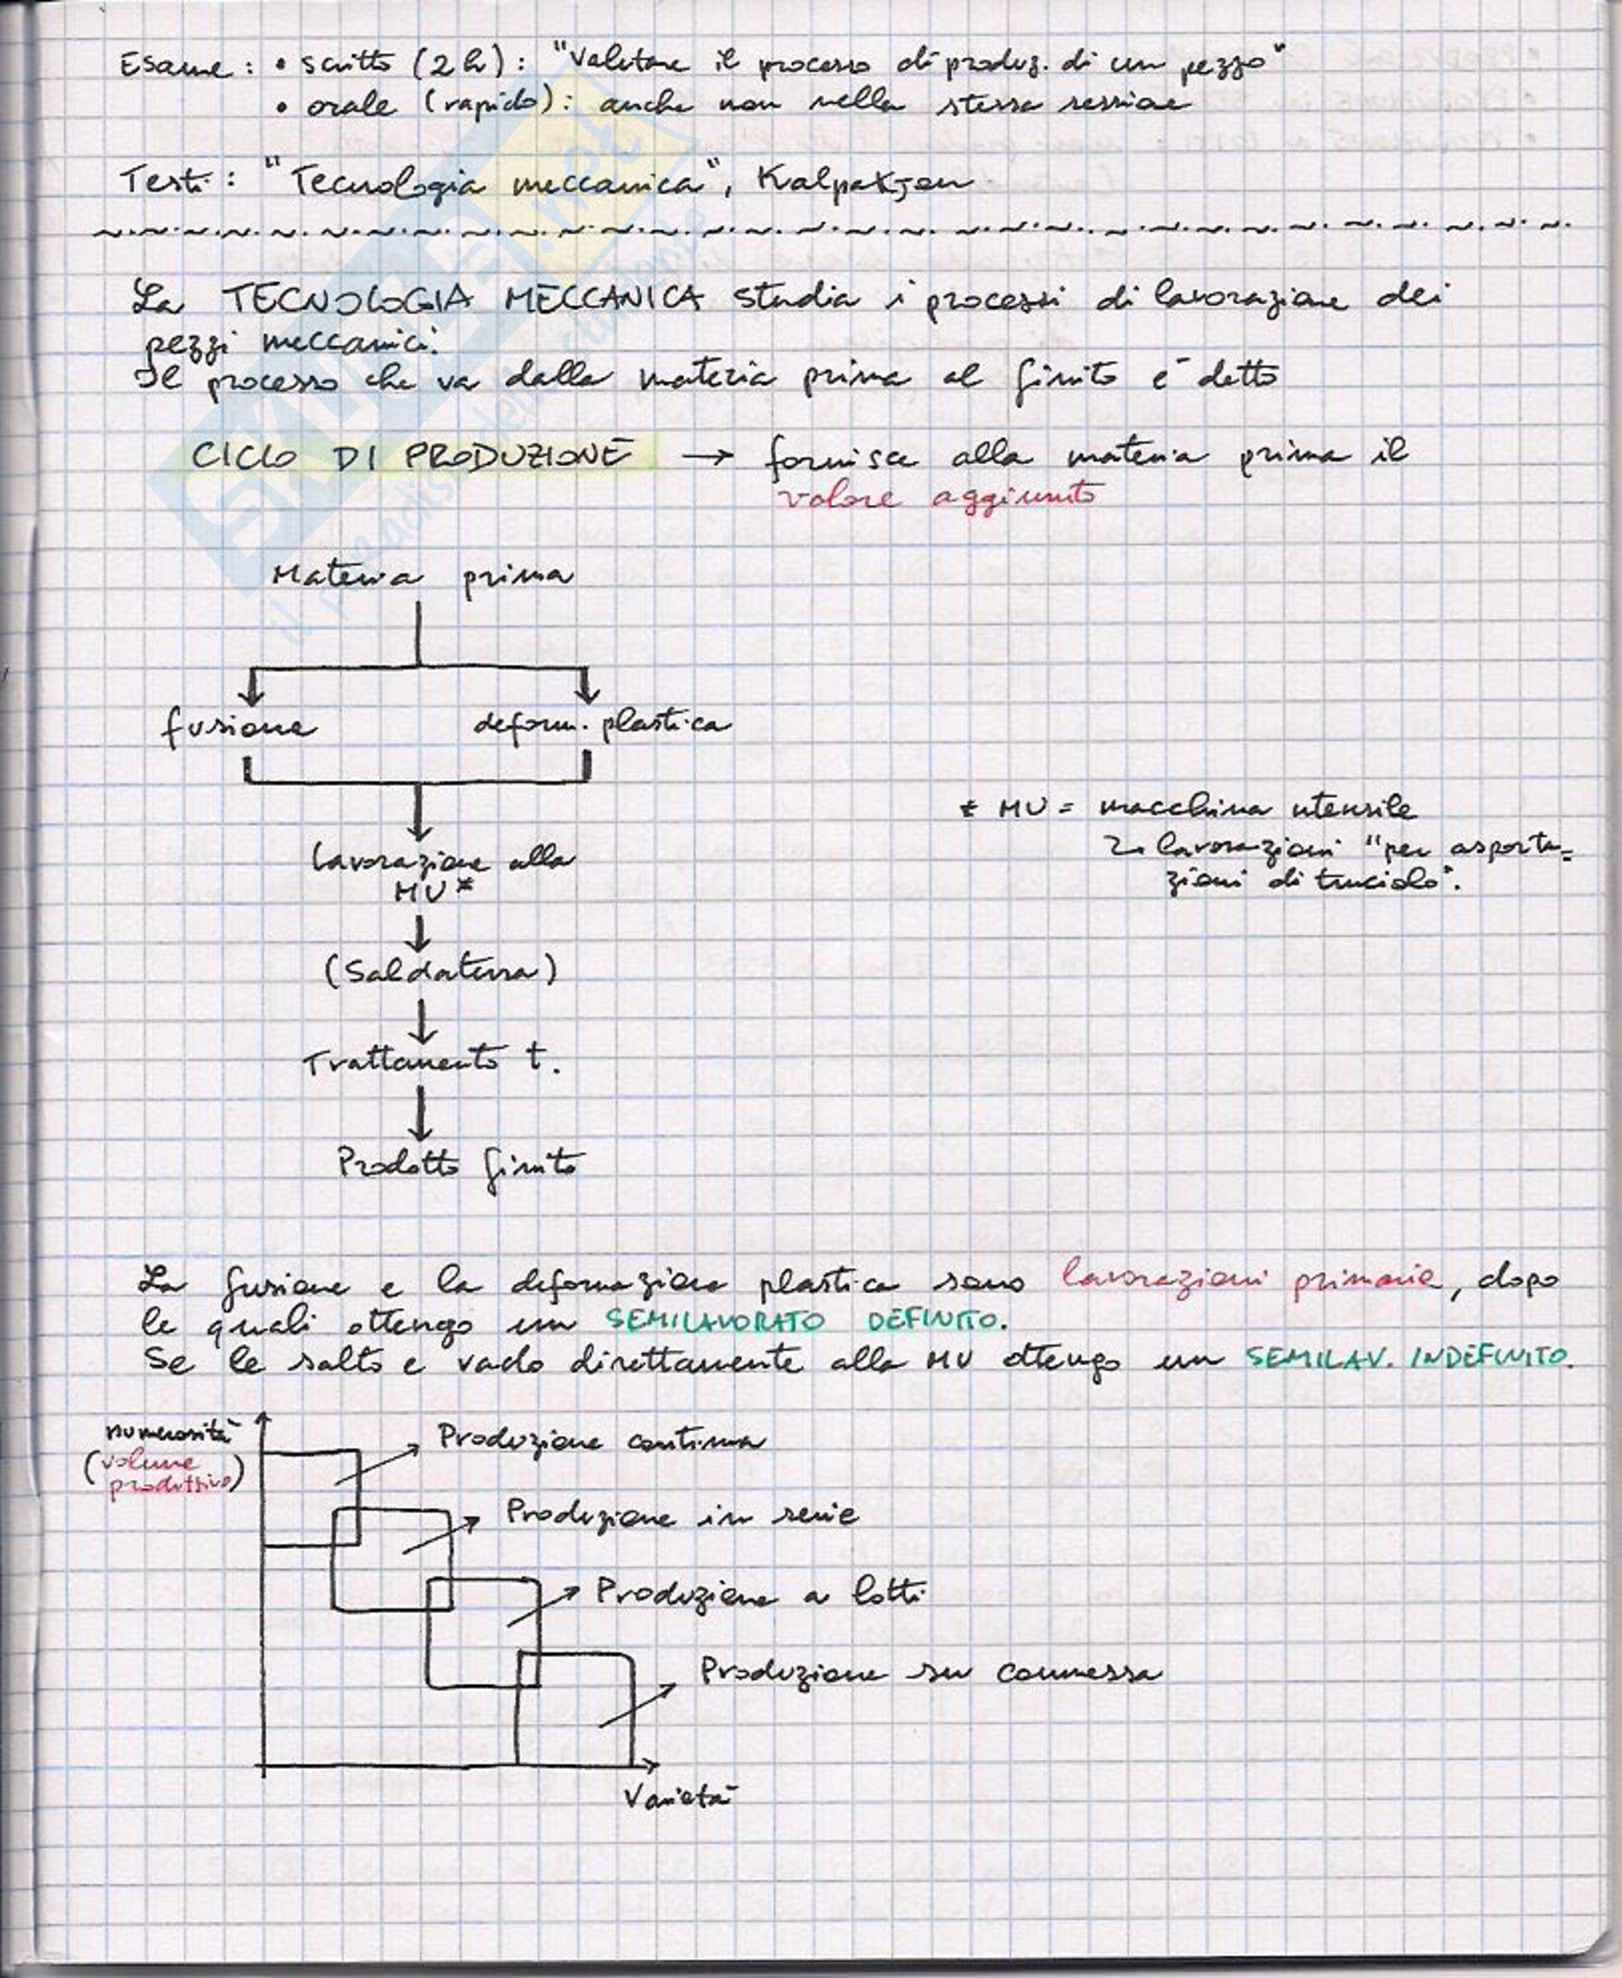 Esame: • scritto (2 h): "Valutare il processo di produz. di un pezzo"
• orale (rapido): anche non nella stessa sessione
Testi: "Tecnologia meccanica", Kalpakjan
La TECNOLOGIA MECCANICA studia i processi di lavorazione dei
pezzi meccanici.
Il processo che va dalla materia prima al finito è detto
CICLO DI PRODUZIONE → fornisce alla materia prima il
valore aggiunto
Materia prima
fusione deform. plastica
Lavorazione alla
MU*
* MU = macchina utensile
lavorazioni "per asporta=
zioni di truciolo".
(Saldatura)
Trattamento t.
Prodotto finito
La fusione e la deformazione plastica sono lavorazioni primarie, dopo
le quali ottengo un SEMILAVORATO DEFINITO.
Se le salto e vado direttamente alla MU ottengo un SEMILAV. INDEFINITO.
numerosità
(volume
produttivo)
Produzione continua
Produzione in serie
Produzione a lotti
Produzione su commessa
Varietà